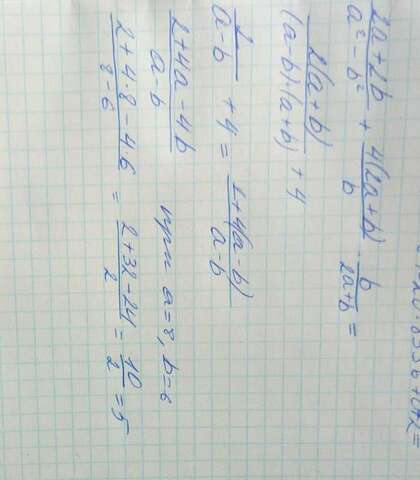 (2a+2b)/(a²-b²) + 4(2a+b)/b · b/(2a+b) =
2(a+b)/((a-b)·(a+b)) + 4
2/(a-b) + 4 = (2+4(a-b))/(a-b)
(2+4a-4b)/(a-b) при a=8, b=6
(2+4·8-4·6)/(8-6) = (2+32-24)/2 = 10/2 = 5